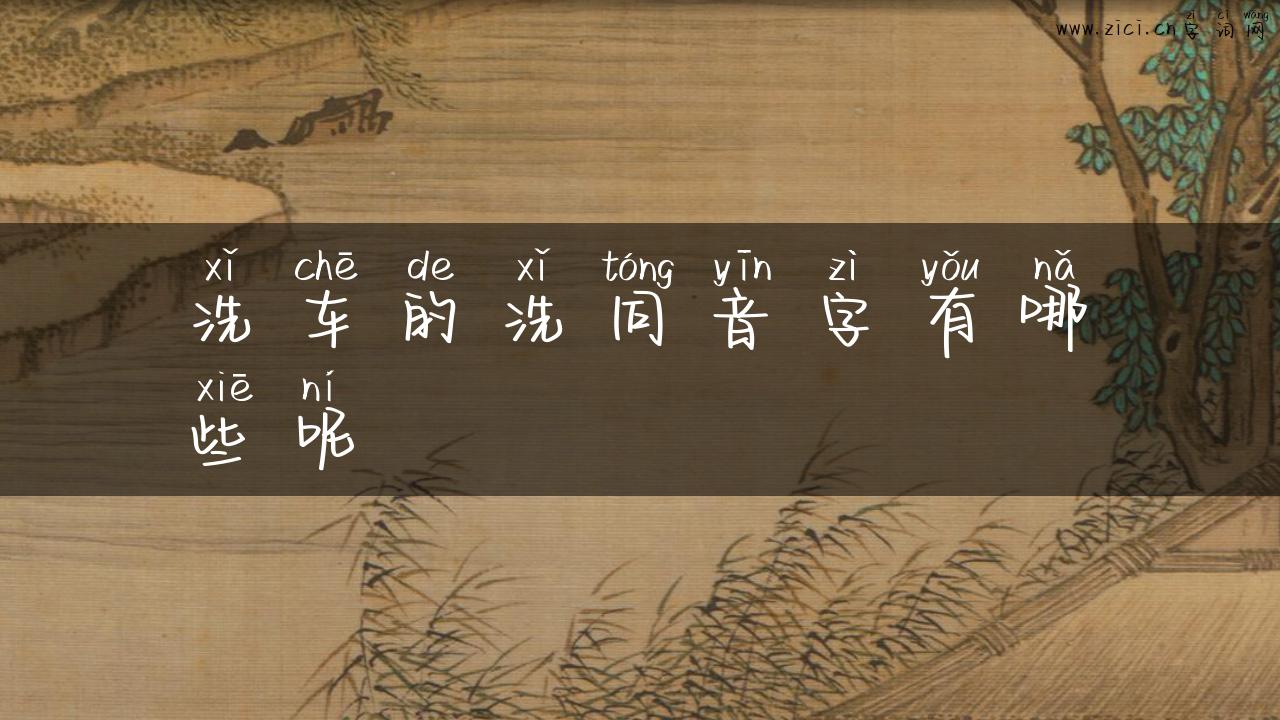 zì cí wǎng
www.zici.cn字词网
xǐ chē de xǐ tóng yīn zì yǒu nǎ
洗车的洗同音字有哪
xiē ní
些呢